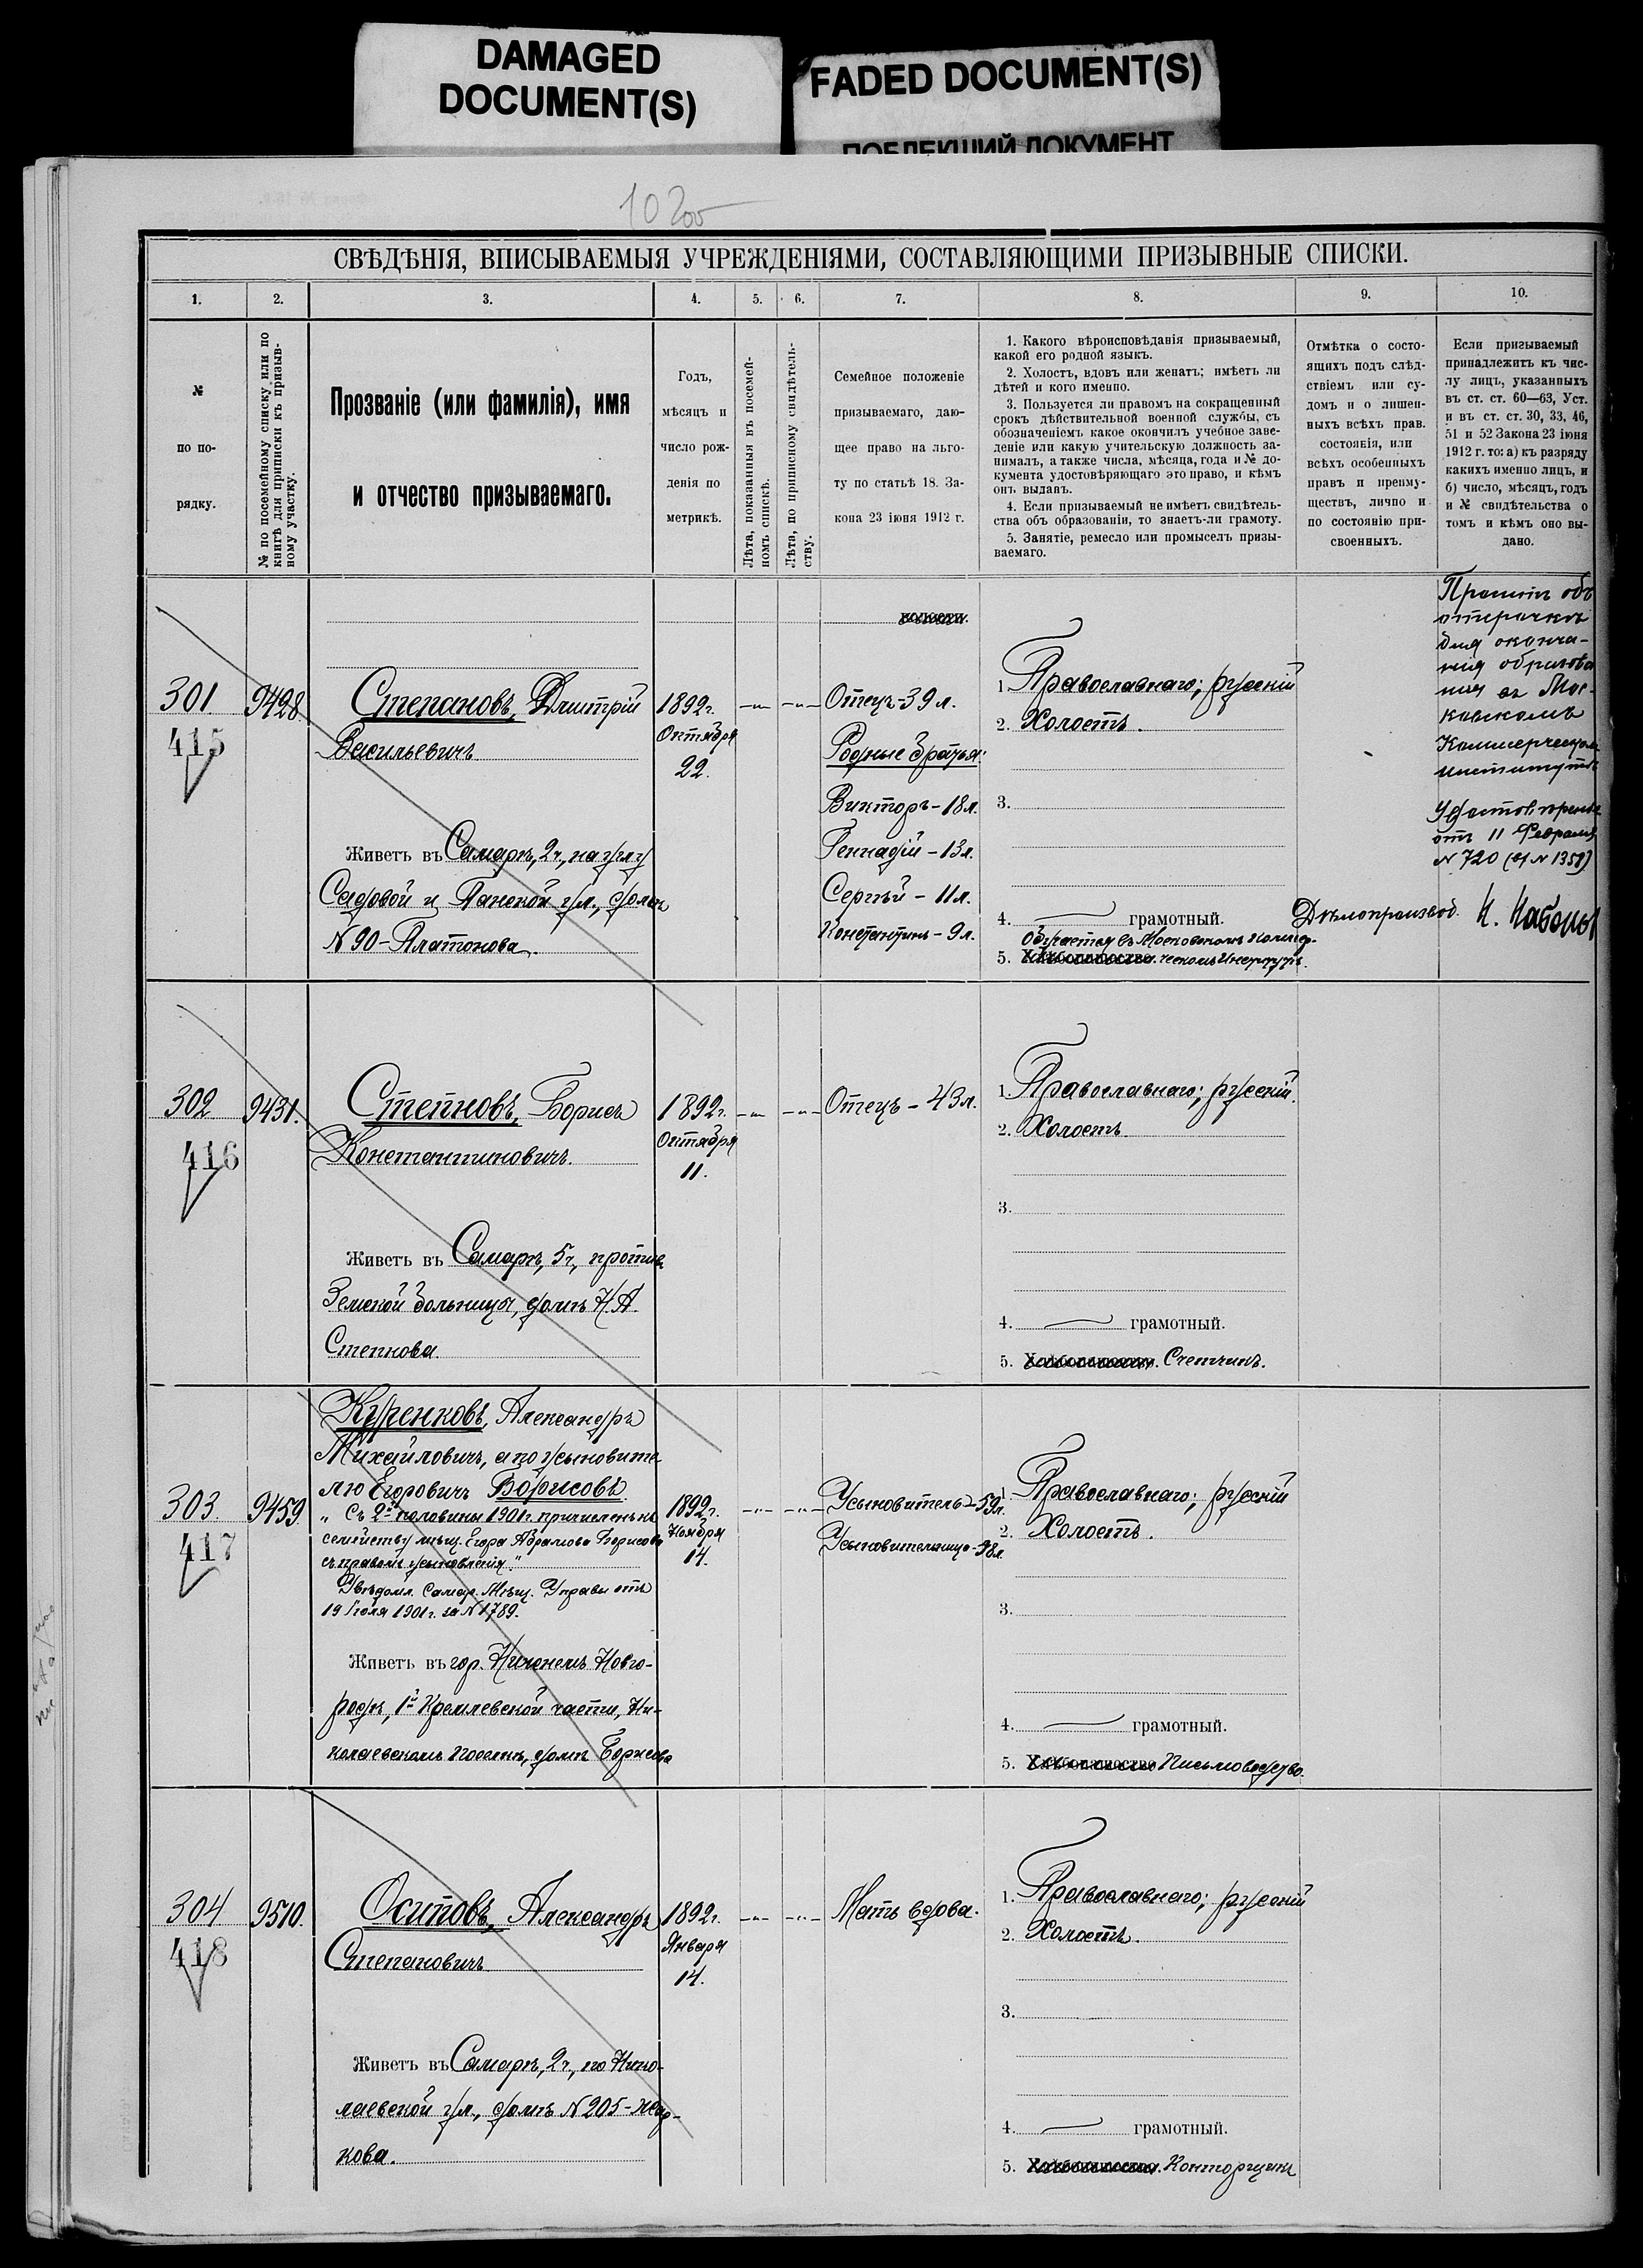 DAMAGED
DOCUMENT(S)
FADED DOCUMENT(S)
ПОБЛЕКШИЙ ДОКУМЕНТ
СВѢДѢНІЯ, ВПИСЫВАЕМЫЯ УЧРЕЖДЕНІЯМИ, СОСТАВЛЯЮЩИМИ ПРИЗЫВНЫЕ СПИСКИ.
1. 2. 3. 4. 5. 6. 7. 8. 9. 10.
№
по по-
рядку.
№ по посемейному списку или по
книгѣ для приписки къ призыв-
ному участку.
Прозваніе (или фамилія), имя
и отчество призываемаго.
Годъ,
мѣсяцъ и
число рож-
денія по
метрикѣ.
Лѣта, показанныя въ посемей-
номъ спискѣ.
Лѣта, по приписному свидѣтель-
ству.
Семейное положеніе
призываемаго, даю-
щее право на льго-
ту по статьѣ 18. За-
кона 23 іюня 1912 г.
1. Какого вѣроисповѣданія призываемый,
какой его родной языкъ.
2. Холостъ, вдовъ или женатъ; имѣетъ ли
дѣтей и кого именно.
3. Пользуется ли правомъ на сокращенный
срокъ дѣйствительной военной службы, съ
обозначеніемъ какое окончилъ учебное заве-
деніе или какую учительскую должность за-
нималъ, а также числа, мѣсяца, года и № до-
кумента удостовѣряющаго это право, и кѣмъ
онъ выданъ.
4. Если призываемый не имѣетъ свидѣтель-
ства объ образованіи, то знаетъ-ли грамоту.
5. Занятіе, ремесло или промыселъ призы-
ваемаго.
Отмѣтка о состо-
ящихъ подъ слѣд-
ствіемъ или су-
домъ и о лишен-
ныхъ всѣхъ прав.
состоянія, или
всѣхъ особенныхъ
правъ и преиму-
ществъ, лично и
по состоянію при-
своенныхъ.
Если призываемый
принадлежитъ къ чис-
лу лицъ, указанныхъ
въ ст. ст. 60—63, Уст.
и въ ст. ст. 30, 33, 46,
51 и 52 Закона 23 іюня
1912 г. то: а) къ разряду
какихъ именно лицъ, и
б) число, мѣсяцъ, годъ
и № свидѣтельства о
томъ и кѣмъ оно вы-
дано.
301
415
9428
Степановъ, Дмитрій
Васильевичъ
Живетъ въ Самарѣ, 2ч, на углу
Садовой и Панской ул., домъ
№ 90 - Платонова.
1892 г.
Октября
22.
Отецъ - 39 л.
Родные братья:
Викторъ - 18 л.
Геннадій - 13 л.
Сергѣй - 11 л.
Константинъ - 9 л.
1. Православнаго; русскій
2. Холостъ.
3.
4. грамотный.
Обучается въ Московскомъ Коммер-
5. Хлѣбопашество. ческомъ Институтѣ.
Дѣлопроизвод.
Проситъ объ
отсрочкѣ
для оконча-
нія образова
нія въ Мос-
ковскомъ
Коммерческомъ
институтѣ
отъ 11 Февраля
№ 720
302
416
9431.
Степновъ, Борисъ
Константиновичъ.
Живетъ въ Самарѣ, 5ч, противъ
Земской больницы, домъ Н. А.
Степнова.
1892 г.
Октября
11.
Отецъ - 43 л.
1. Православнаго; русскій.
2. Холостъ.
3.
4. грамотный.
5. Хлѣбопашество. Счетчикъ.
303.
417
9459
Куренковъ, Александръ
Михайловичъ, а по усыновите
лю Егоровичъ Борисовъ
„ Съ 2й половины 1901 г. причисленъ къ
семейству мѣщ. Егора Абрамова Борисова
съ правомъ усыновленія."
Увѣдомл. Самар. Мѣщ. Управы отъ
19 Іюля 1901 г. за № 1789.
Живетъ въ гор. Нижнемъ Новго-
родѣ, 1й Кремлевской части, Ни-
колаевскомъ поселкѣ, домъ Борисова
1892 г.
Ноября
14.
Усыновитель - 59 л.
Усыновительница -
1. Православнаго; русскій
2. Холостъ.
3.
4. грамотный.
5. Хлѣбопашество Письмоводство.
304
418
9510.
Осиповъ, Александръ
Степановичъ
Живетъ въ Самарѣ, 2ч, по Нико-
лаевской ул., домъ № 205 -
кова.
1892 г.
Января
14.
Мать вдова.
1. Православнаго; русскій
2. Холостъ.
3.
4. грамотный.
5. Хлѣбопашество. Конторщикъ